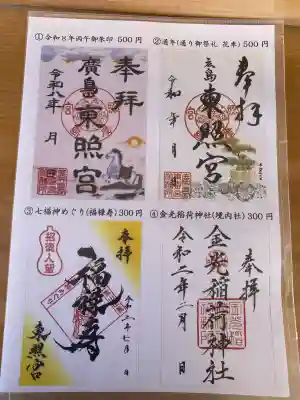 ①令和8年丙午御朱印 500円
奉拝
廣島東照宮
令和八年 月 日
②通年(通り御祭礼 花車)500円
奉拝
広島
東照宮
令和 年 月 日
③七福神めぐり(福禄寿)300円
奉拝
福禄寿
招徳人望
令和二年七月 日
東照宮
④金光稲荷神社(境内社)300円
奉拝
金光稲荷神社
令和二年二月 日